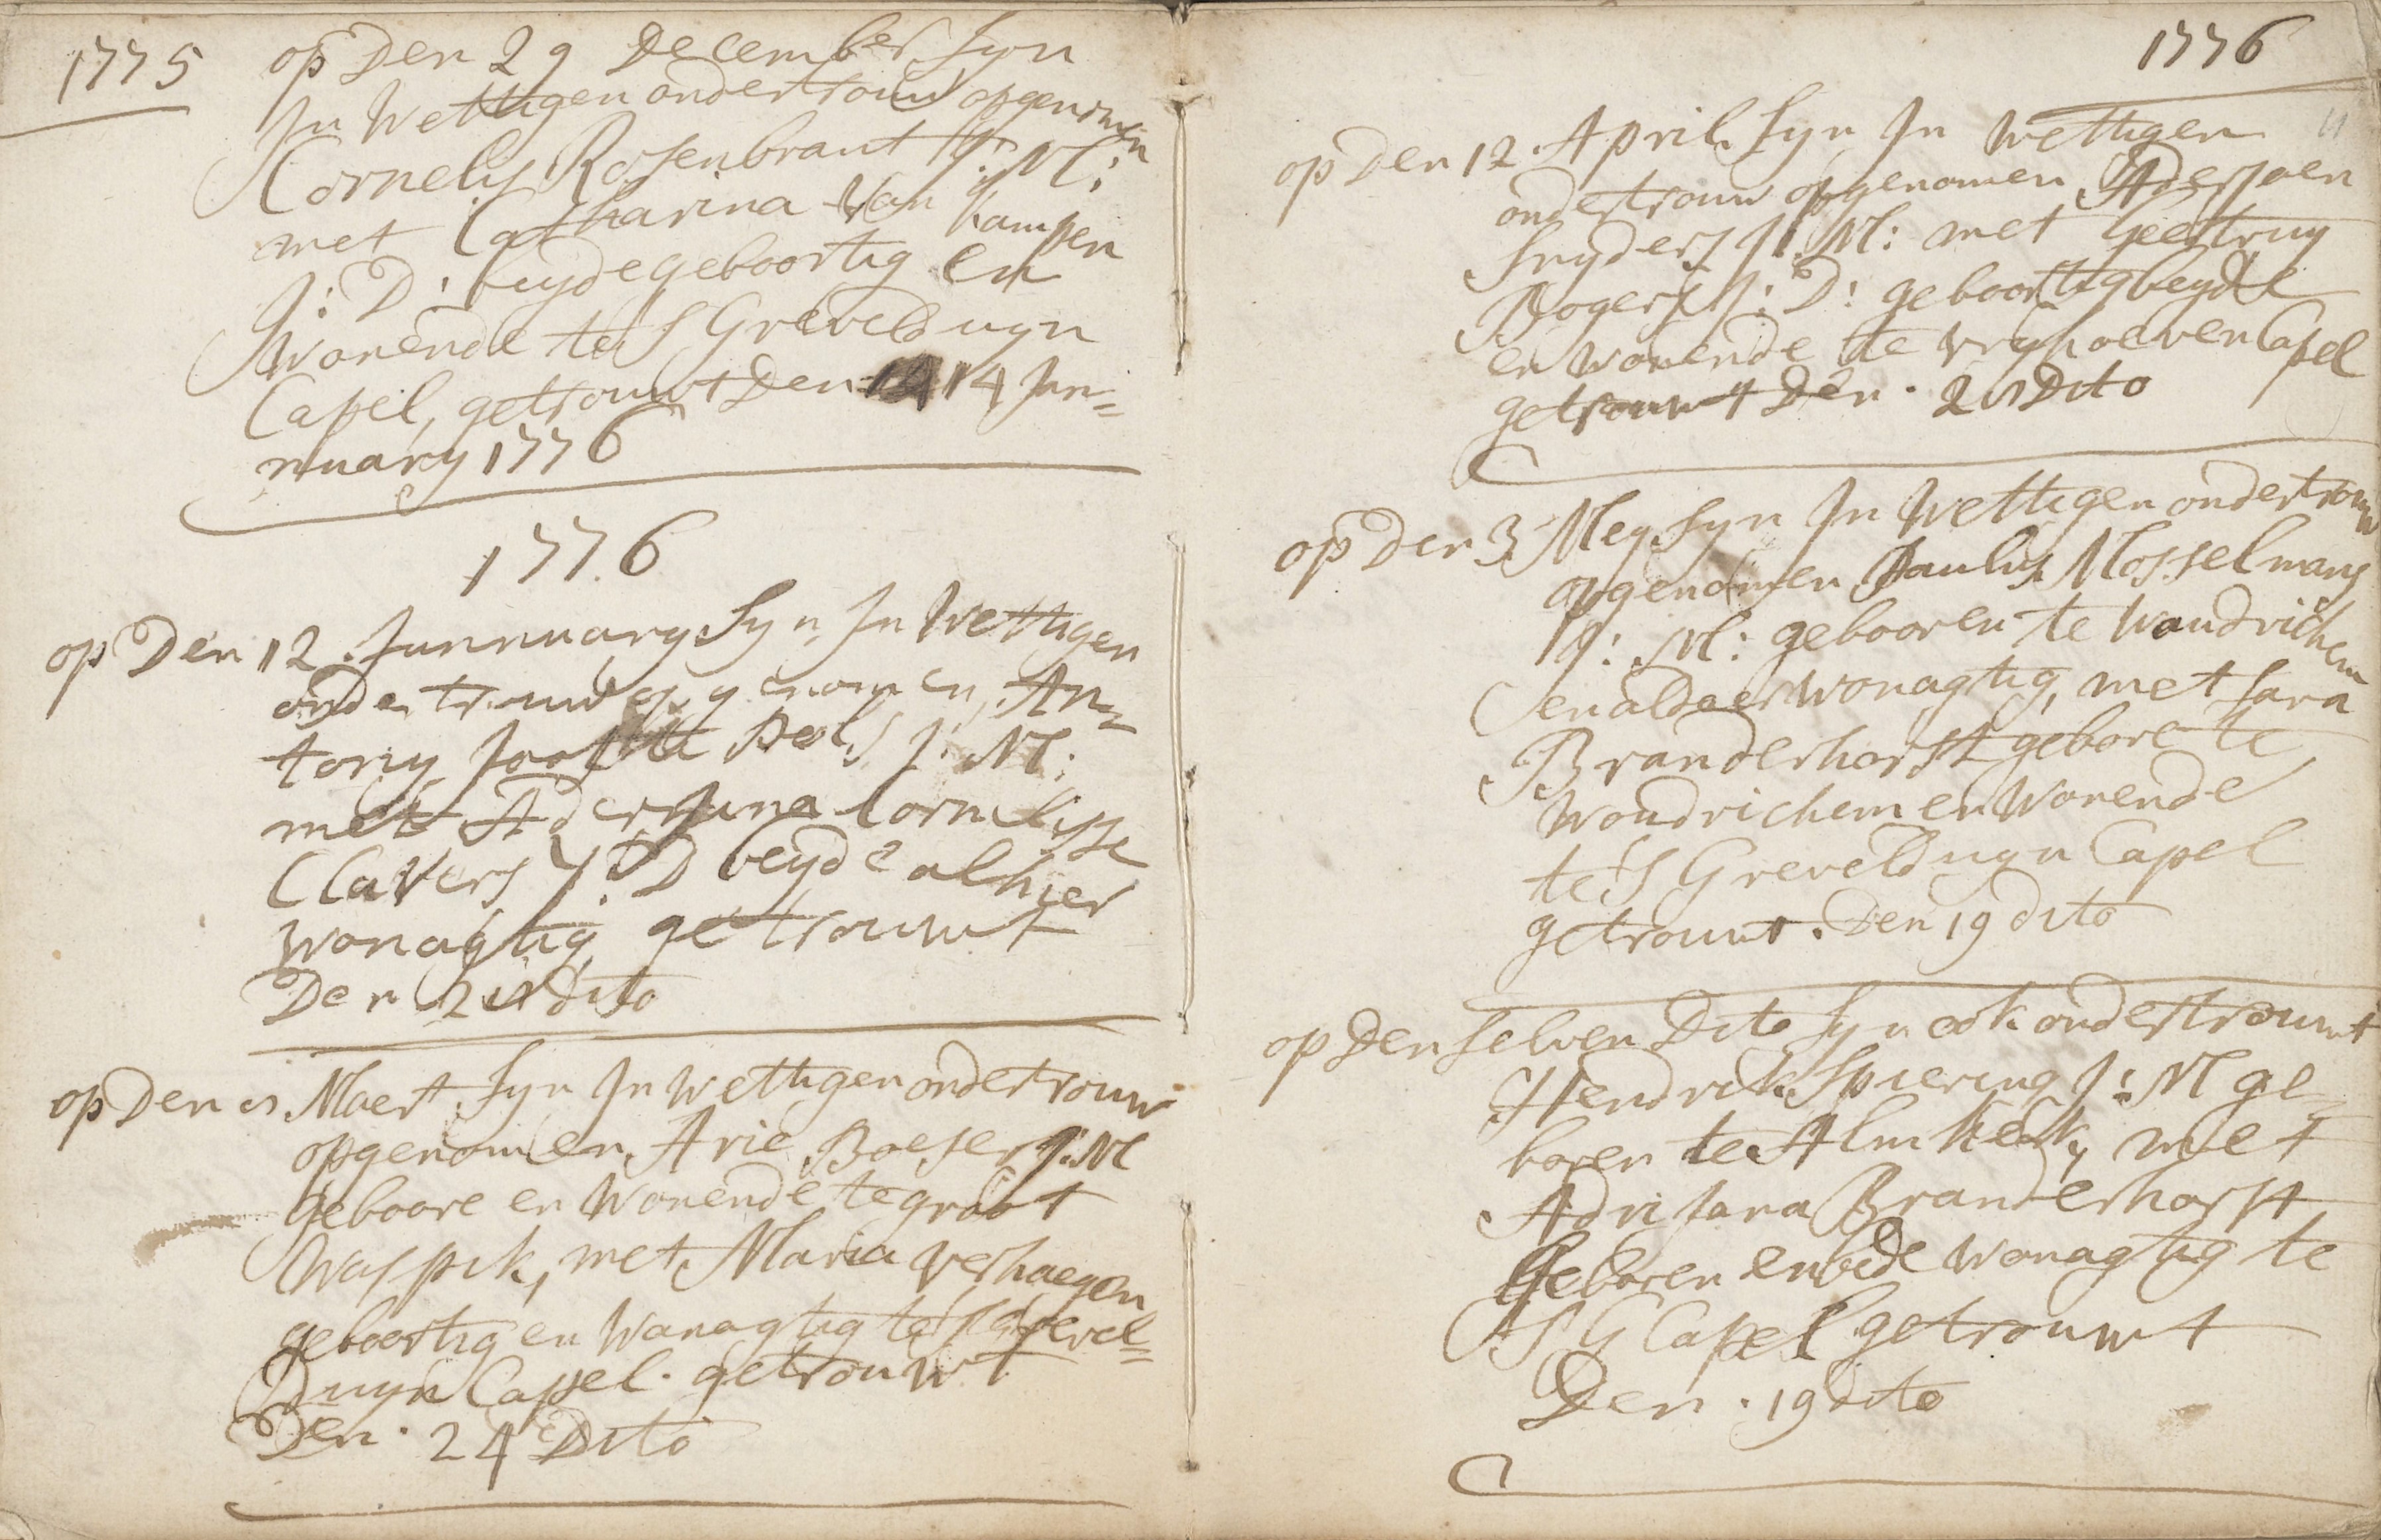 1775
op Den 29 December Syn
In Wettigen ondertrouw opgenomen
Cornelis Rosenbrant J: M:
met Catharina Van Kampen
J: D: beyde geboortig en
Wonende te S Grevelduyn
Capel, getrouwt Den 14 Jan=
nuary 1776
1776
op Den 12 Jannuary Syn In Wettigen
ondertrouw opgenomen, An=
tony J: M:
met Aderjana Cornelisse
Clavers J: D beyde alhier
wonagtig getrouwt
Den dito
op Den Maert Syn In Wettigen ondertrouw
opgenomen Arie Boeser J: M
Geboore en Wonende te groot
Waspik, met Maria verhaegen
geboortig en Wonagtig te S Grevel=
Duyn Capel. getrouwt
Den. 24 Dito
1776
11
op Den 12 April Syn In Wettigen
ondertrouw opgenomen Aderjaen
Snyders J: M: met Geertruy
Bogers J: D: geboortig beyde
en wonende te vryhoeven Capel
getrouwt Den. Dito
op Den 3 Mey Syn In Wettigen ondertrouw
opgenomen Paulis Mosselmans
J: M: gebooren te Woudrichem
en aldaer wonagtig, met Sara
Branderhorst gebore te
Woudrichem en Wonende
te S Grevelduyn Capel
getrouwt. Den 19 dito
op Den selven Dito Syn ook ondertrouwt
Hendrik Spiering J: M ge=
boren te Almkerk, met
Adrijana Branderhorst
Geboren en bede wonagtig te
S G Capel getrouwt
Den. 19 dito